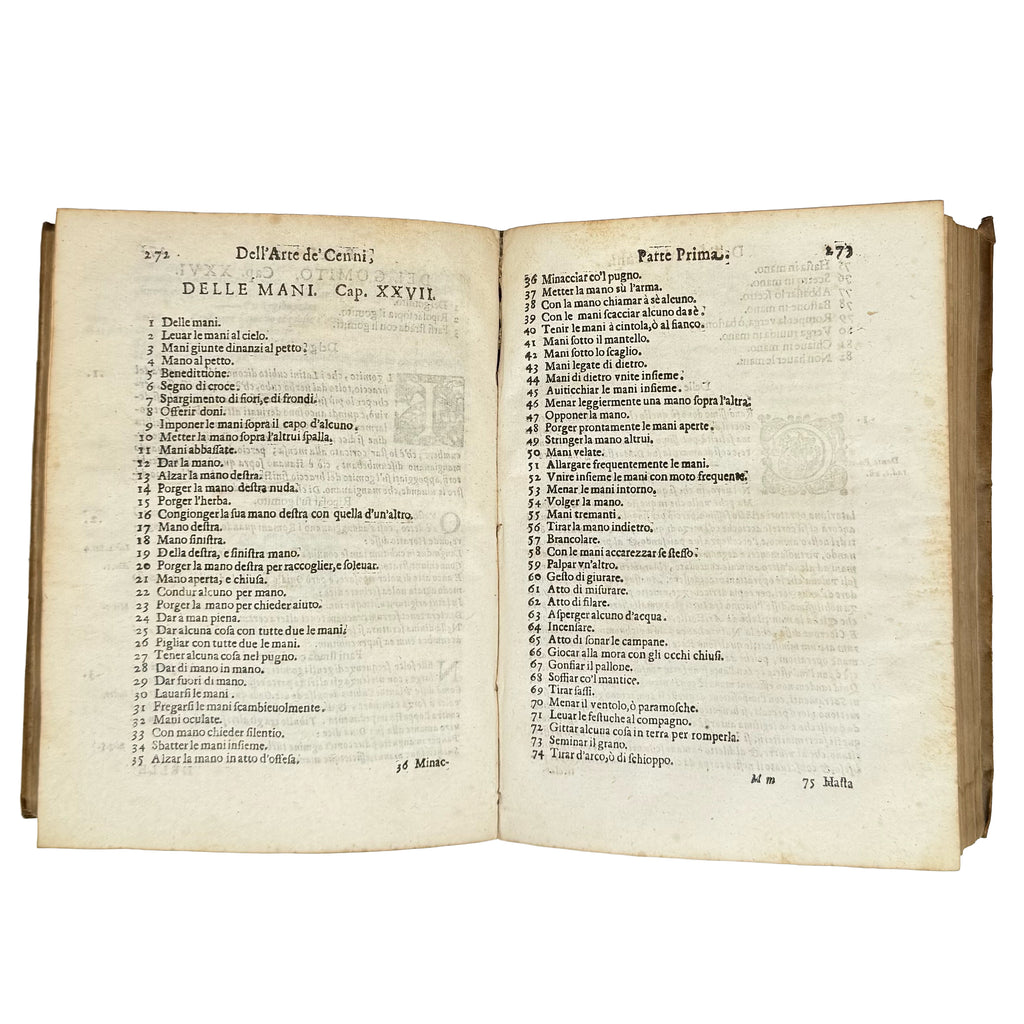 272 Dell'Arte de' Cenni,
DELLE MANI. Cap. XXVII.
1 Delle mani.
2 Leuar le mani al cielo.
3 Mani giunte dinanzi al petto.
4 Mano al petto.
5 Benedittione.
6 Segno di croce.
7 Spargimento di fiori, e di frondi.
8 Offerir doni.
9 Imponer le mani sopra il capo d'alcuno.
10 Metter la mano sopra l'altrui spalla.
11 Mani abbassate.
12 Dar la mano.
13 Alzar la mano destra.
14 Porger la mano destra nuda.
15 Porger l'herba.
16 Congionger la sua mano destra con quella d'un'altro.
17 Mano destra.
18 Mano sinistra.
19 Della destra, e sinistra mano.
20 Porger la mano destra per raccoglier, e soleuar.
21 Mano aperta, e chiusa.
22 Condur alcuno per mano.
23 Porger la mano per chieder aiuto.
24 Dar a man piena.
25 Dar alcuna cosa con tutte due le mani.
26 Pigliar con tutte due le mani.
27 Tener alcuna cosa nel pugno.
28 Dar di mano in mano.
29 Dar fuori di mano.
30 Lauarsi le mani.
31 Fregarsi le mani scambieuolmente.
32 Mani oculate.
33 Con mano chieder silentio.
34 Sbatter le mani insieme.
35 Alzar la mano in atto d'offesa.
36 Minac-
Parte Prima. 273
36 Minacciar co'l pugno.
37 Metter la mano sù l'arma.
38 Con la mano chiamar à sè alcuno.
39 Con le mani scacciar alcuno da sè.
40 Tenir le mani à cintola, ò al fianco.
41 Mani sotto il mantello.
42 Mani sotto lo scaglio.
43 Mani legate di dietro.
44 Mani di dietro vnite insieme.
45 Auiticchiar le mani insieme.
46 Menar leggiermente una mano sopra l'altra.
47 Opponer la mano.
48 Porger prontamente le mani aperte.
49 Stringer la mano altrui.
50 Mani velate.
51 Allargare frequentemente le mani.
52 Vnire insieme le mani con moto frequente.
53 Menar le mani intorno.
54 Volger la mano.
55 Mani tremanti.
56 Tirar la mano indietro.
57 Brancolare.
58 Con le mani accarezzar se stesso.
59 Palpar vn'altro.
60 Gesto di giurare.
61 Atto di misurare.
62 Atto di filare.
63 Asperger alcuno d'acqua.
64 Incensare.
65 Atto di sonar le campane.
66 Giocar alla mora con gli occhi chiusi.
67 Gonfiar il pallone.
68 Soffiar co'l mantice.
69 Tirar sassi.
70 Menar il ventolo, ò paramosche.
71 Leuar le festuche al compagno.
72 Gittar alcuna cosa in terra per romperla.
73 Seminar il grano.
74 Tirar d'arco, ò di schioppo.
M m 75 Hasta